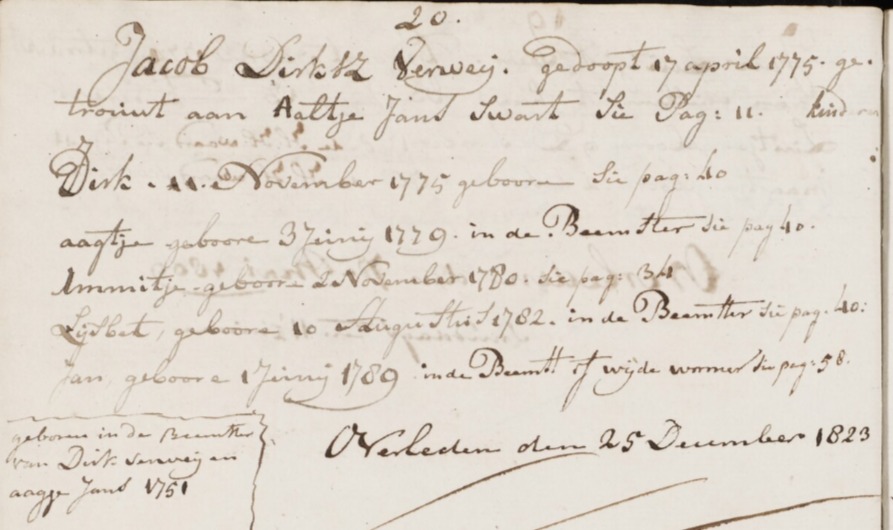 20.
Jacob Dirksz Verweij. gedoopt 17 april 1775. ge.
trouwt aan Aaltje Jans Swart Sie Pag: 11. kinderen
Dirk. 11. November 1775 geboore Sie pag: 40
aagtje geboore 3 Junij 1779. in de Beemster Sie pag 40.
Immitje geboore 2 November 1780. Sie pag: 34
Lijsbet, geboore 10 Augustus 1782. in de Beemster Sie pag. 40:
Jan, geboore 1 Junij 1789 in de Beemst of wijde wormer Sie pag: 58.
Overleden den 25 December 1823
geboren in de Beemster
van Dirk verweij en
aagje Jans 1751